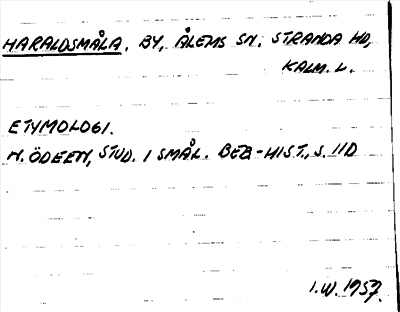 HARALDSMÅLA. BY, ÅLEMS SN. STRANDA HD,
KALM. L.
ETYMOLOGI.
N. ÖDEEN, STUD. I SMÅL. BEB-HIST., S. 110
I.W. 1957.